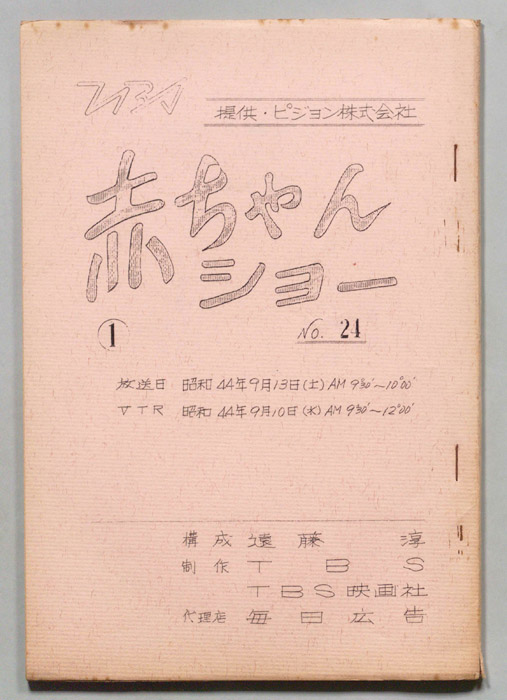 TBS
提供・ピジョン株式会社
赤ちゃん
ショー
①
No. 24
放送日 昭和44年9月13日(土)AM 9°30′〜10°00′
VTR 昭和44年9月10日(水)AM 9°30′〜12°00′
構成 遠藤 淳
制作 TBS
TBS映画社
代理店 毎日広告